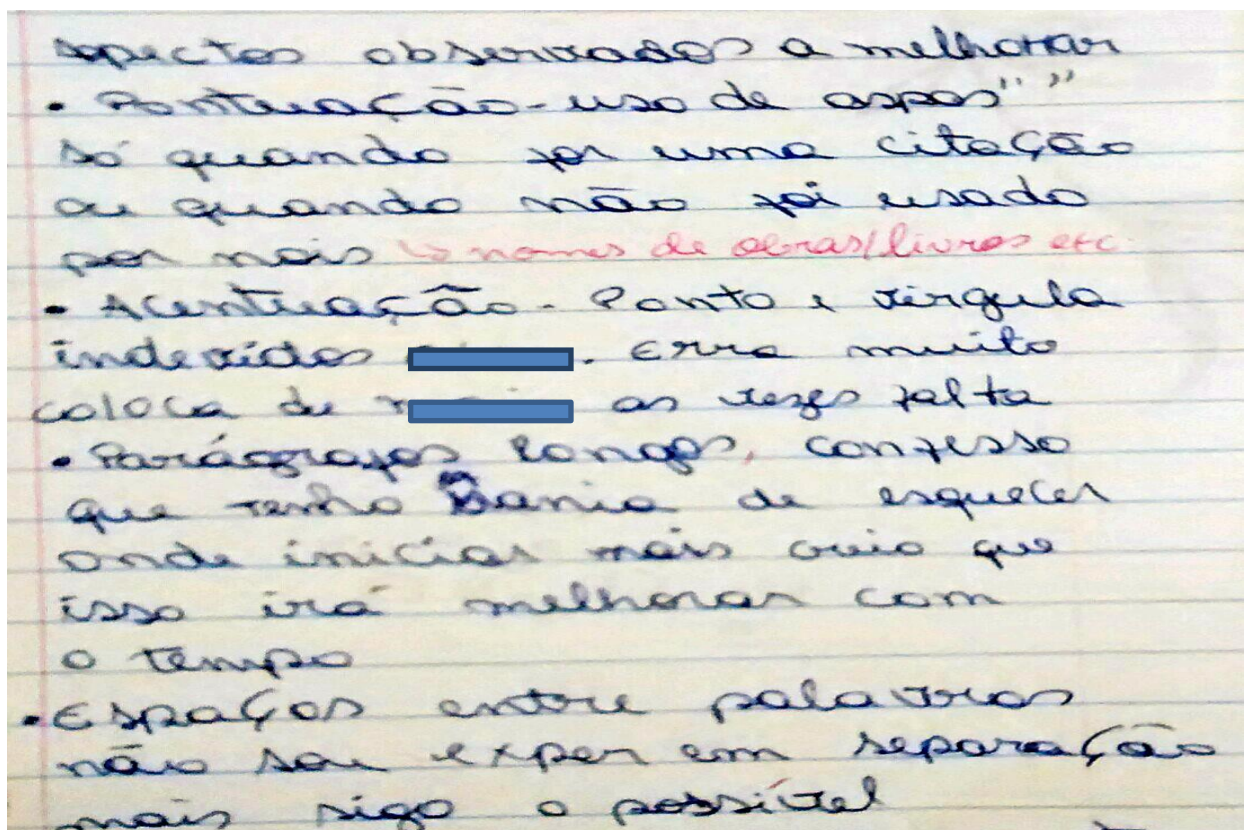 aspectos observados a melhorar
• Pontuação - uso de aspas " "
só quando for uma citação
ou quando não foi usado
por nois ↳ nomes de obras/livros etc.
• Acentuação - Ponto e virgula
indevidos . Erra muito
coloca de as vezes falta
• Parágrafos longos, confesso
que tenho de esquecer
onde iniciar mais creio que
isso irá melhorar com
o tempo
• Espaços entre palavras
não sou exper em separação
mais sigo o possível